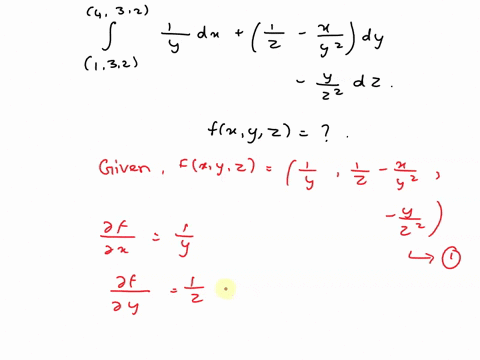 (4, 3, 2)
∫ 1/y dx + (1/z - x/y²) dy
(1, 3, 2)
- y/z² dz.
f(x, y, z) = ? .
Given, F(x, y, z) = (1/y , 1/z - x/y² ,
- y/z²)
∂f/∂x = 1/y
↳ ①
∂f/∂y = 1/z